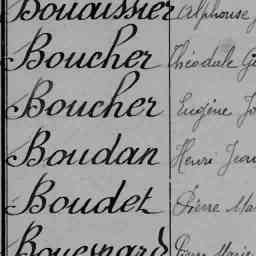 Bouaissier Alphonse
Boucher Théodule
Boucher Eugène
Boudan Henri
Boudet Pierre
Bouesnard Pierre Marie